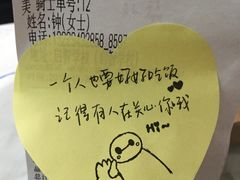 美 骑士单号:12
姓名:钟(女士)
一个人也要好好吃饭
记得有人在关心你哦
Hi~